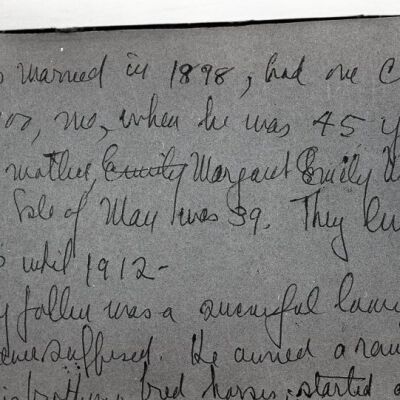 married in 1898, had one C
, me, when he was 45 y
mother, Emily Margaret Emily
Isle of Man was 39. They liv
until 1912-
y father was a successful law
. He owned a ran
brother bred horses, started a